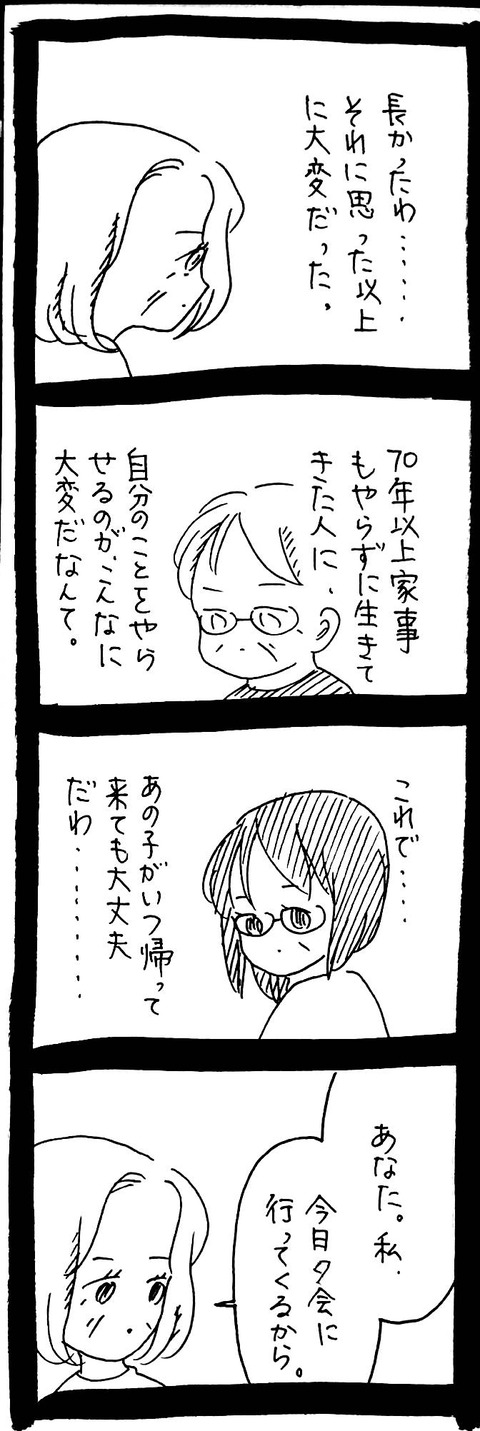 長かったわ......
それに思った以上
に大変だった。
70年以上家事
もやらずに生きて
きた人に、
自分のことをやら
せるのが、こんなに
大変だなんて。
これで....
あの子がいつ帰って
来ても大丈夫
だわ.........
あなた。私、
今日夕会に
行ってくるから。